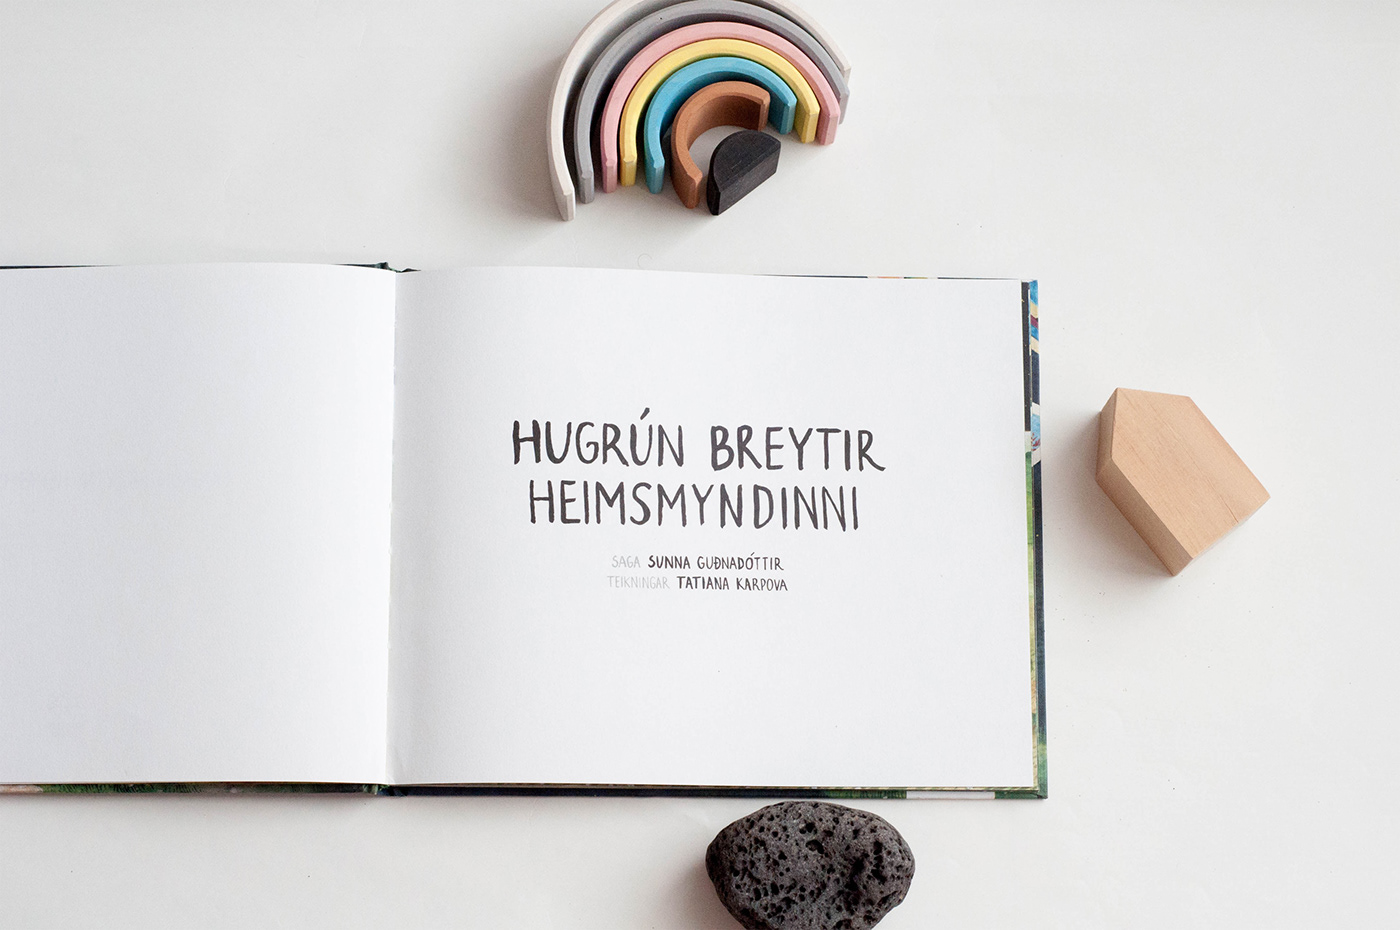 HUGRÚN BREYTIR
HEIMSMYNDINNI
SAGA SUNNA GUÐNADÓTTIR
TEIKNINGAR TATIANA KARPOVA